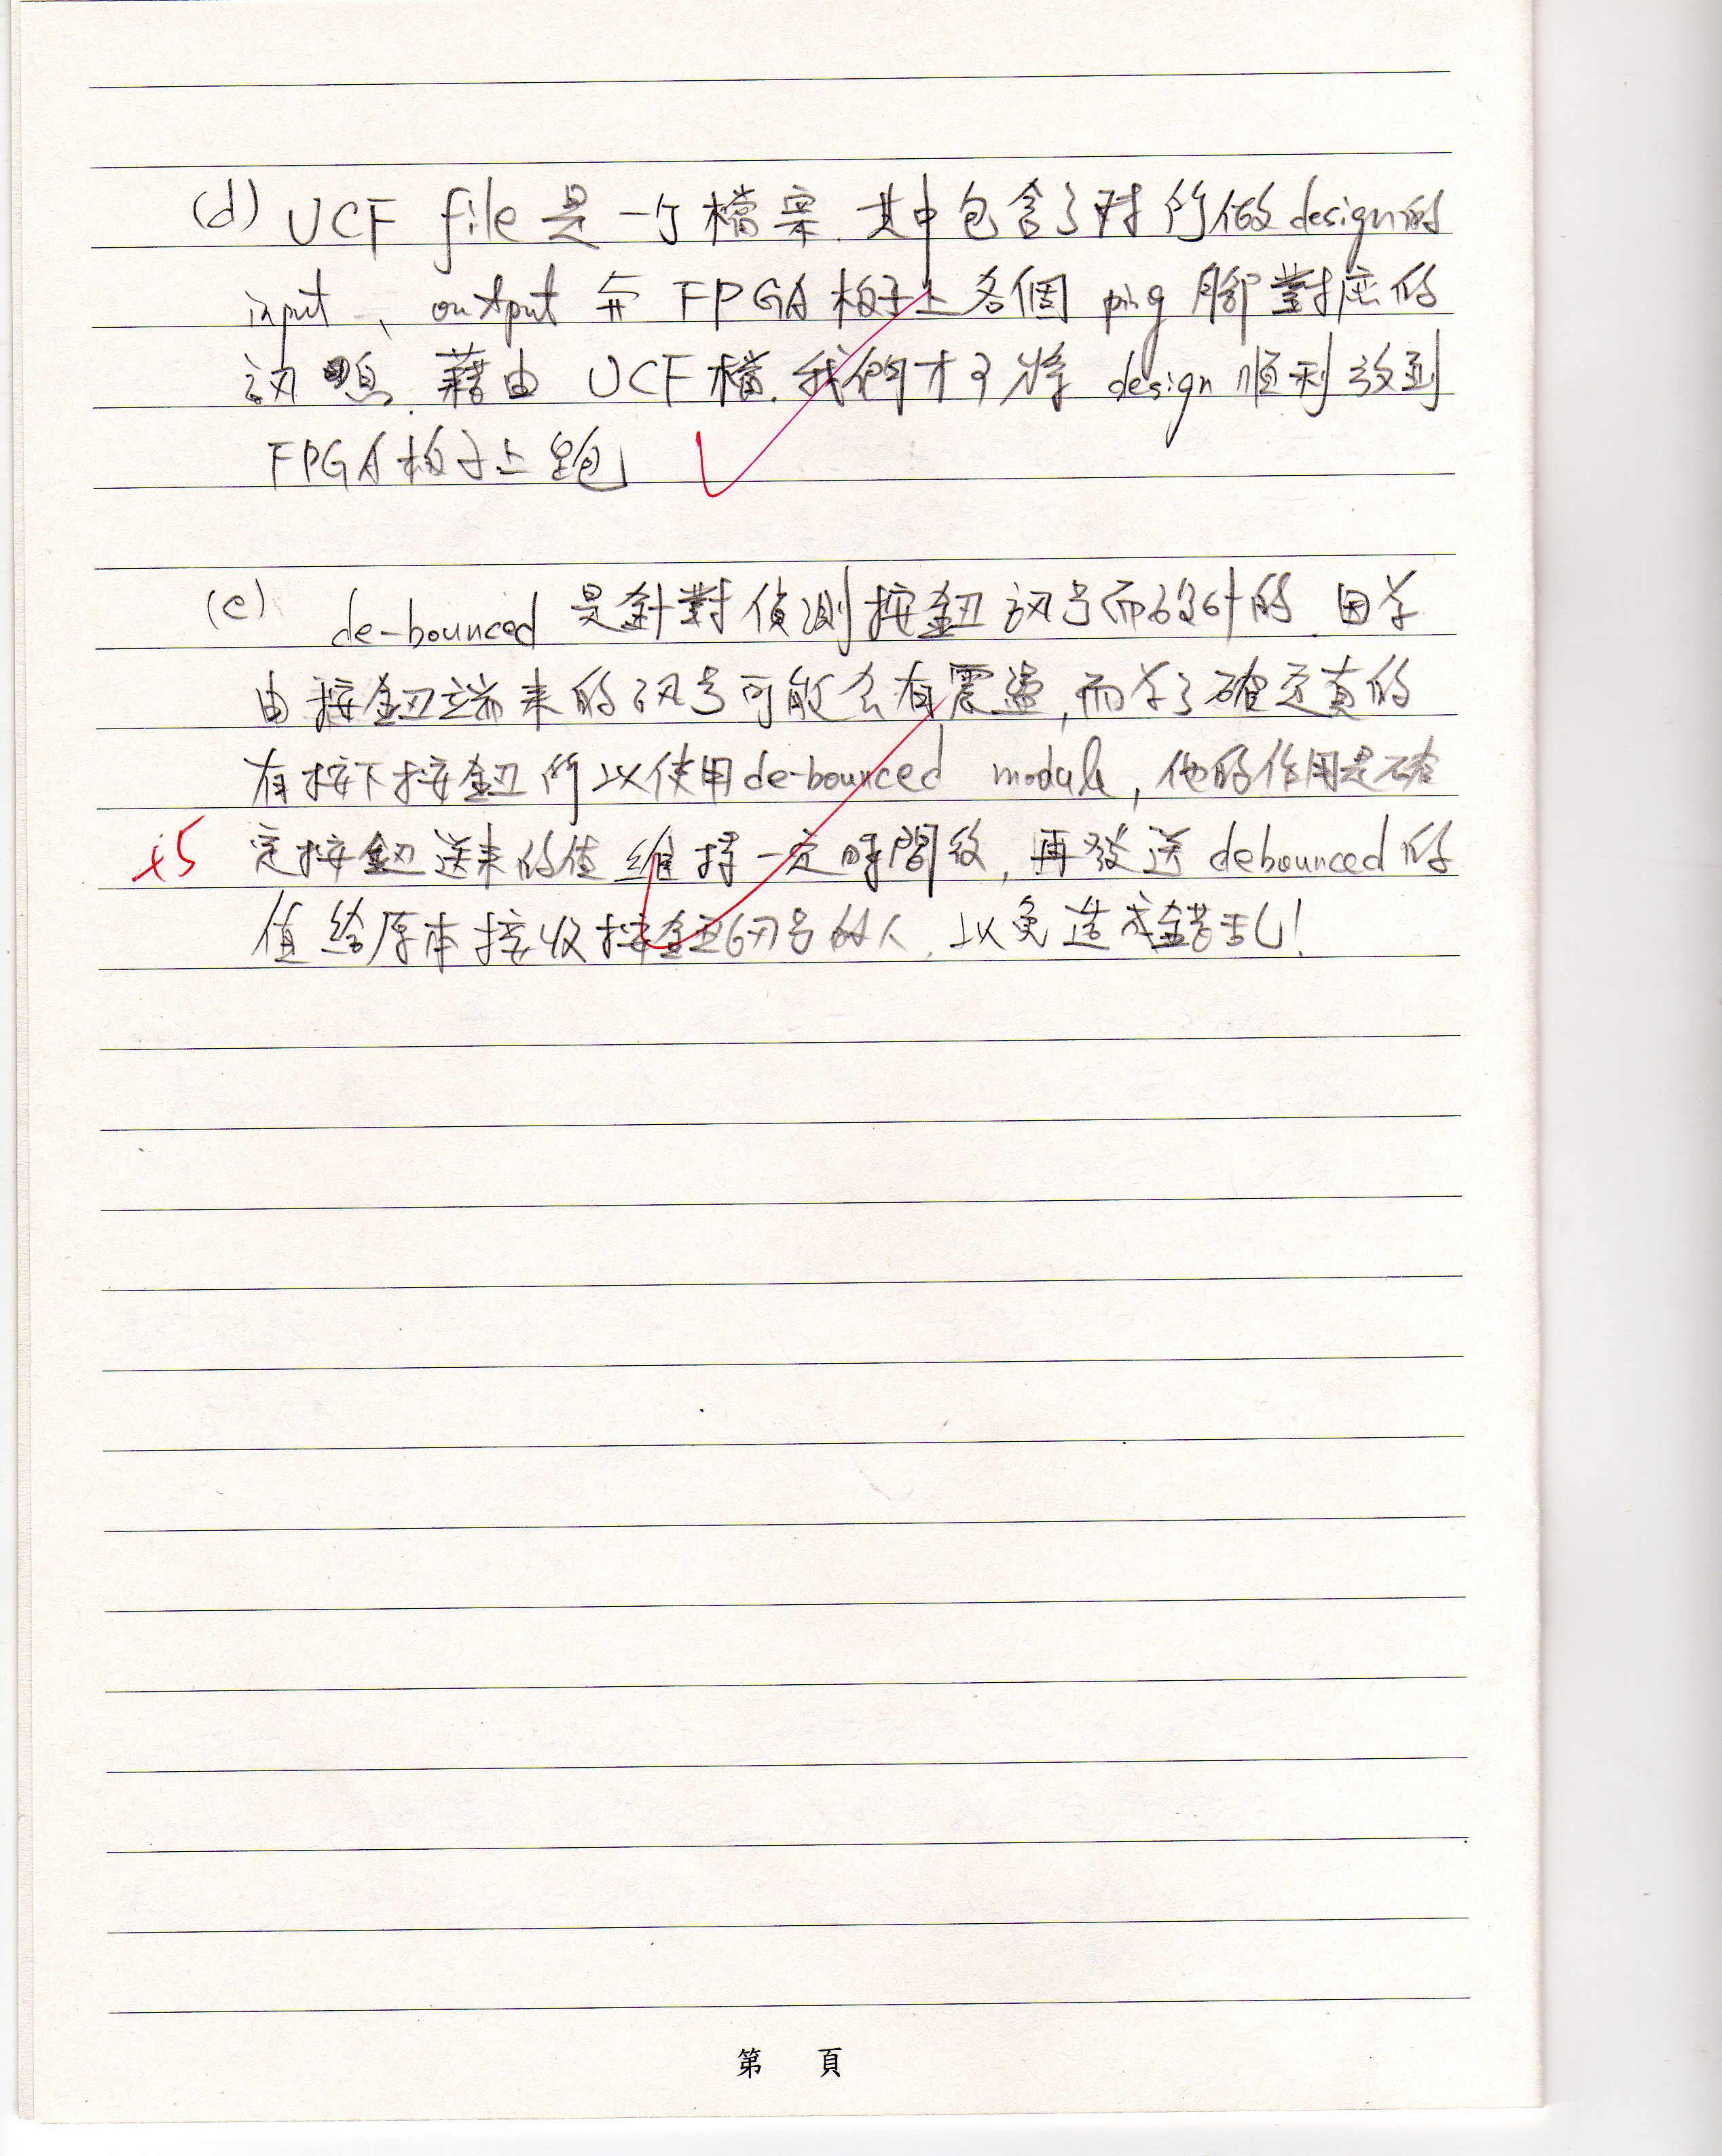 (d) UCF file 是一个檔案. 其中包含了对所做design的
input、output 与 FPGA板子上各個 ping 腳對应的
訊息. 藉由 UCF檔. 我們才可將 design 順利放到
FPGA板子上跑
(e) de-bounced 是針對偵測按鈕訊号而設計的. 因为
由按鈕端来的訊号可能会有震盪, 而为了確定真的
有按下按鈕所以使用de-bounced module, 他的作用是確
+5 定按鈕送来的值維持一定時間後, 再發送 debounced 的
值給原本接收按鈕訊号的人. 以免造成錯乱!
第 頁